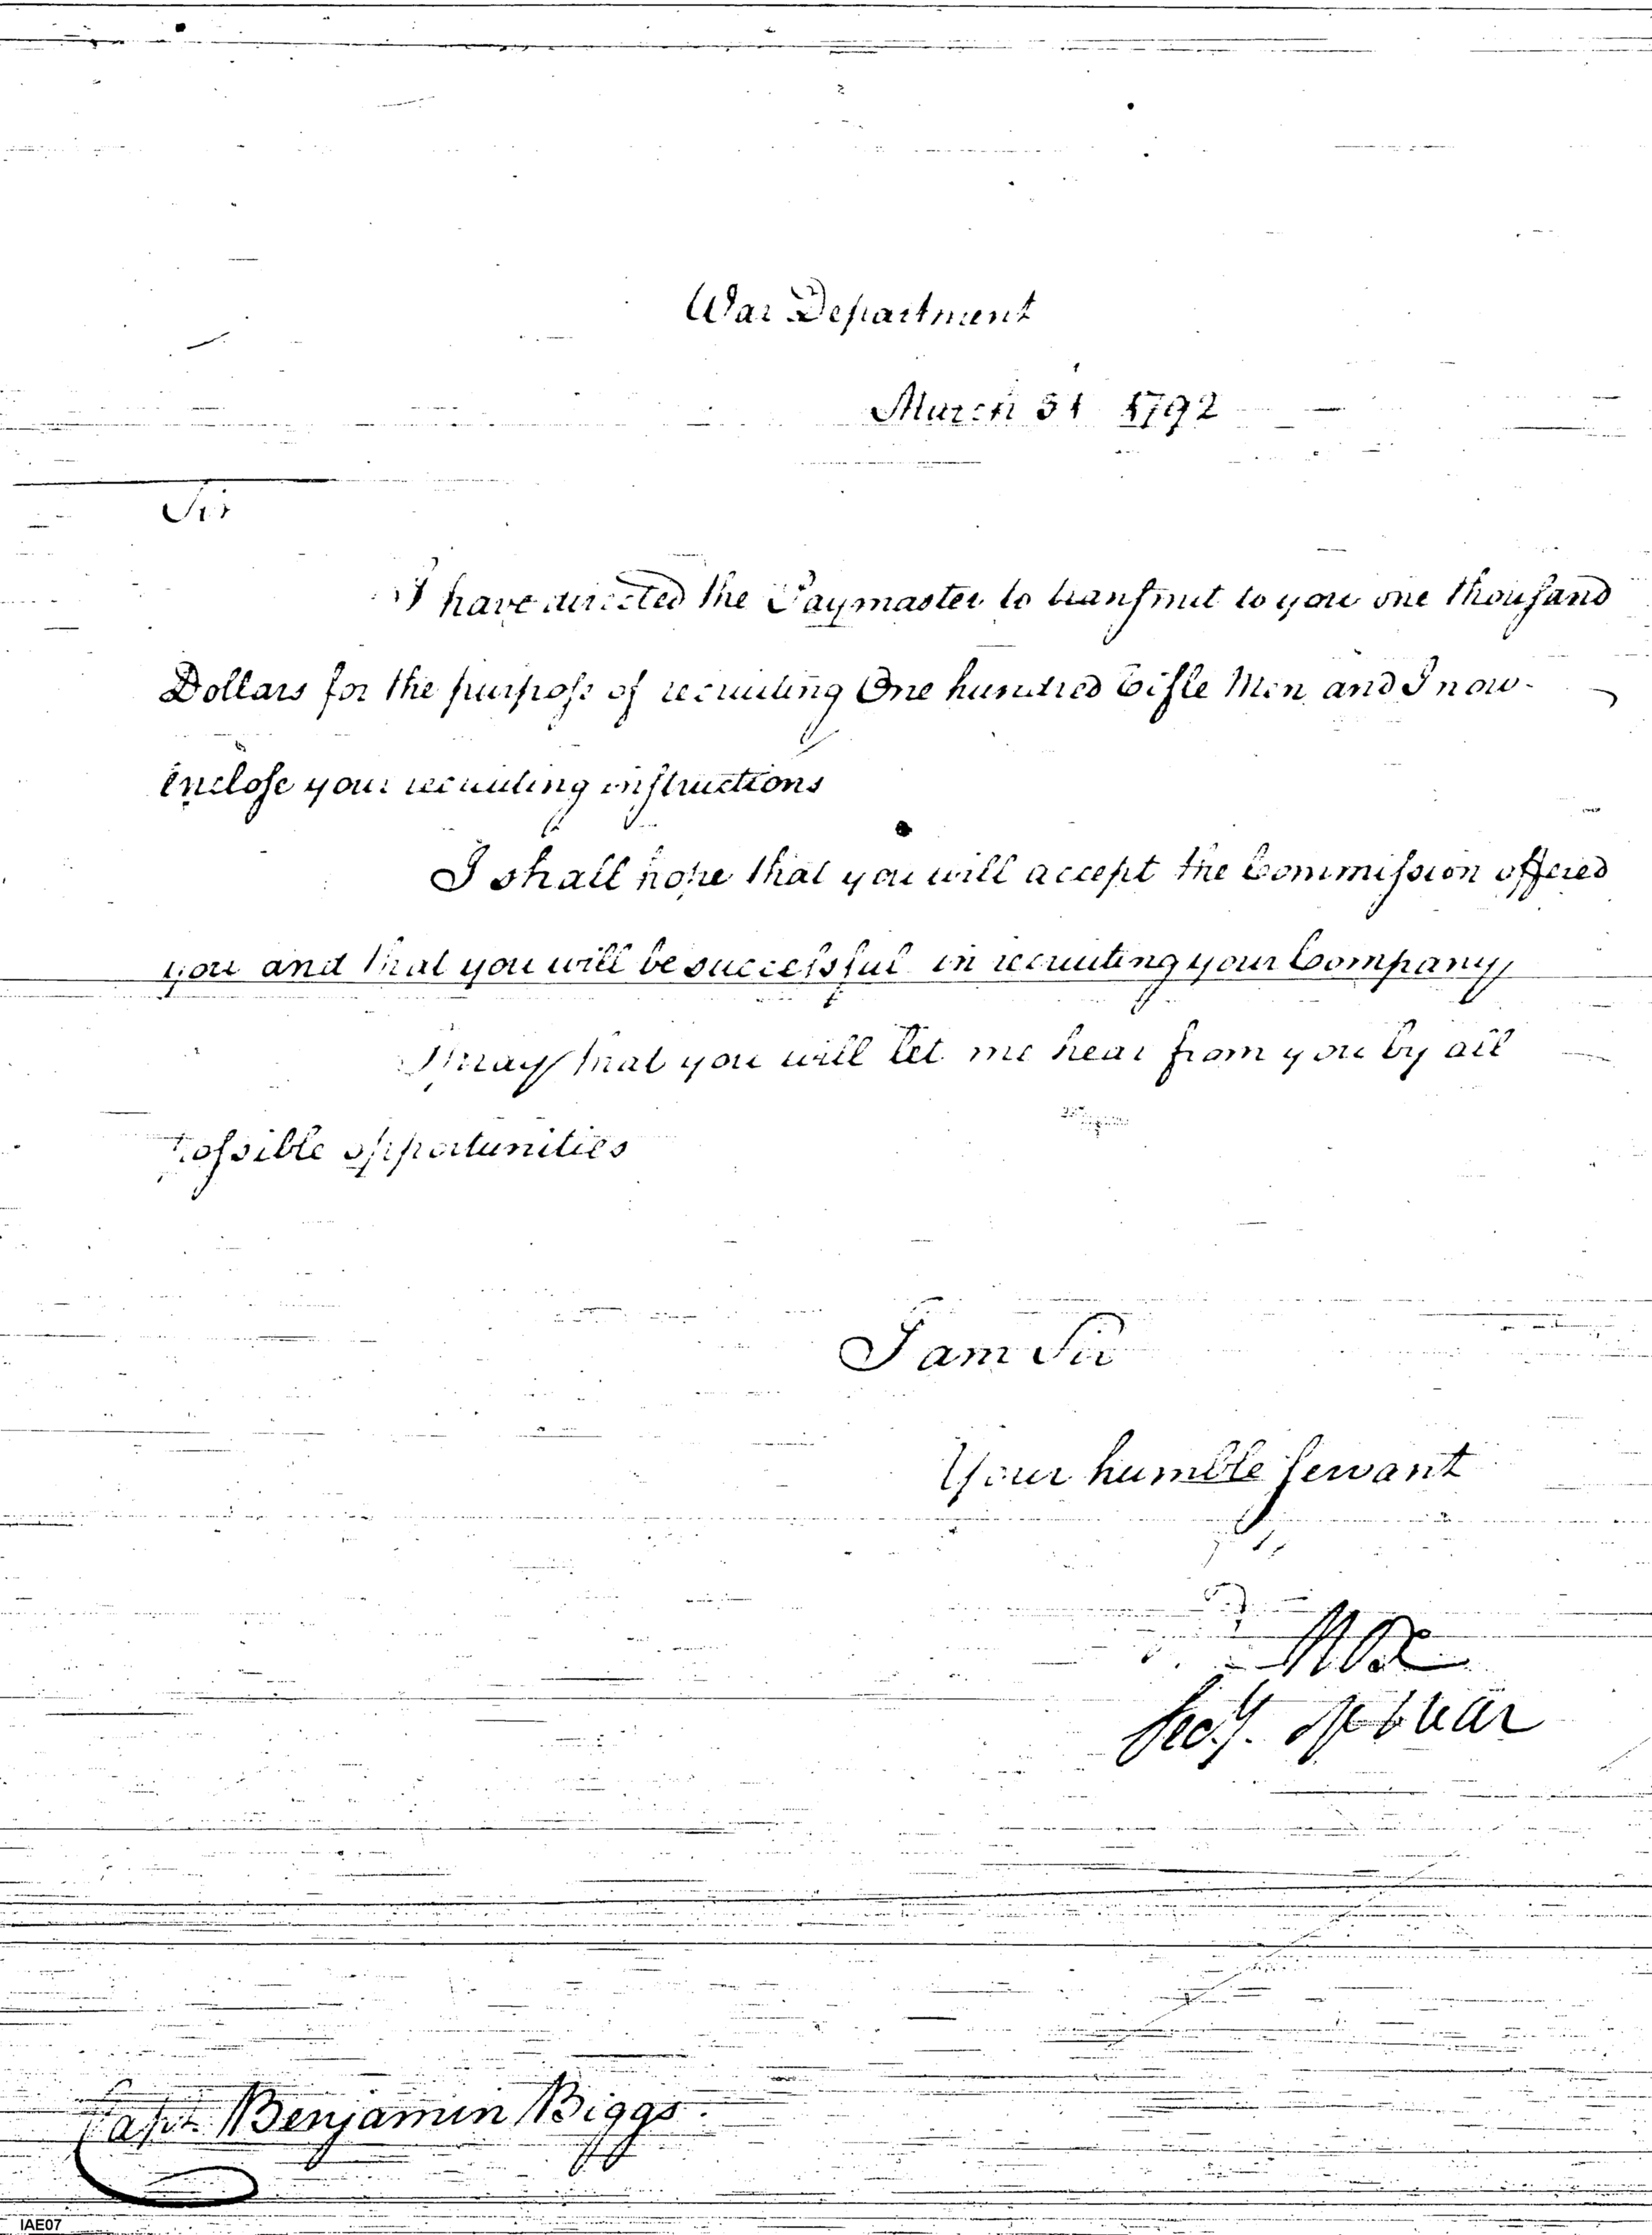 War Department
March 31 1792
Sir
I have directed the Paymaster to transmit to you one thousand
Dollars for the purpose of recruiting One hundred Rifle Men and I now
enclose your recruiting instructions
I shall hope that you will accept the Commission offered
you and that you will be successful in recruiting your Company
I pray that you will let me hear from you by all
possible opportunities
I am Sir
Your humble servant
Knox
Secy. of War
Capt Benjamin Biggs.
IAE07